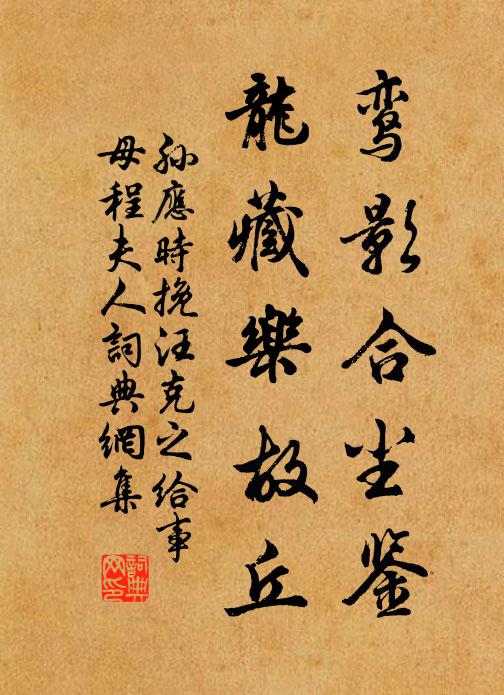 鸾影合尘鉴
龍藏樂故丘
孙應時挽汪克之给事
母程夫人詞典網集
詞典网印